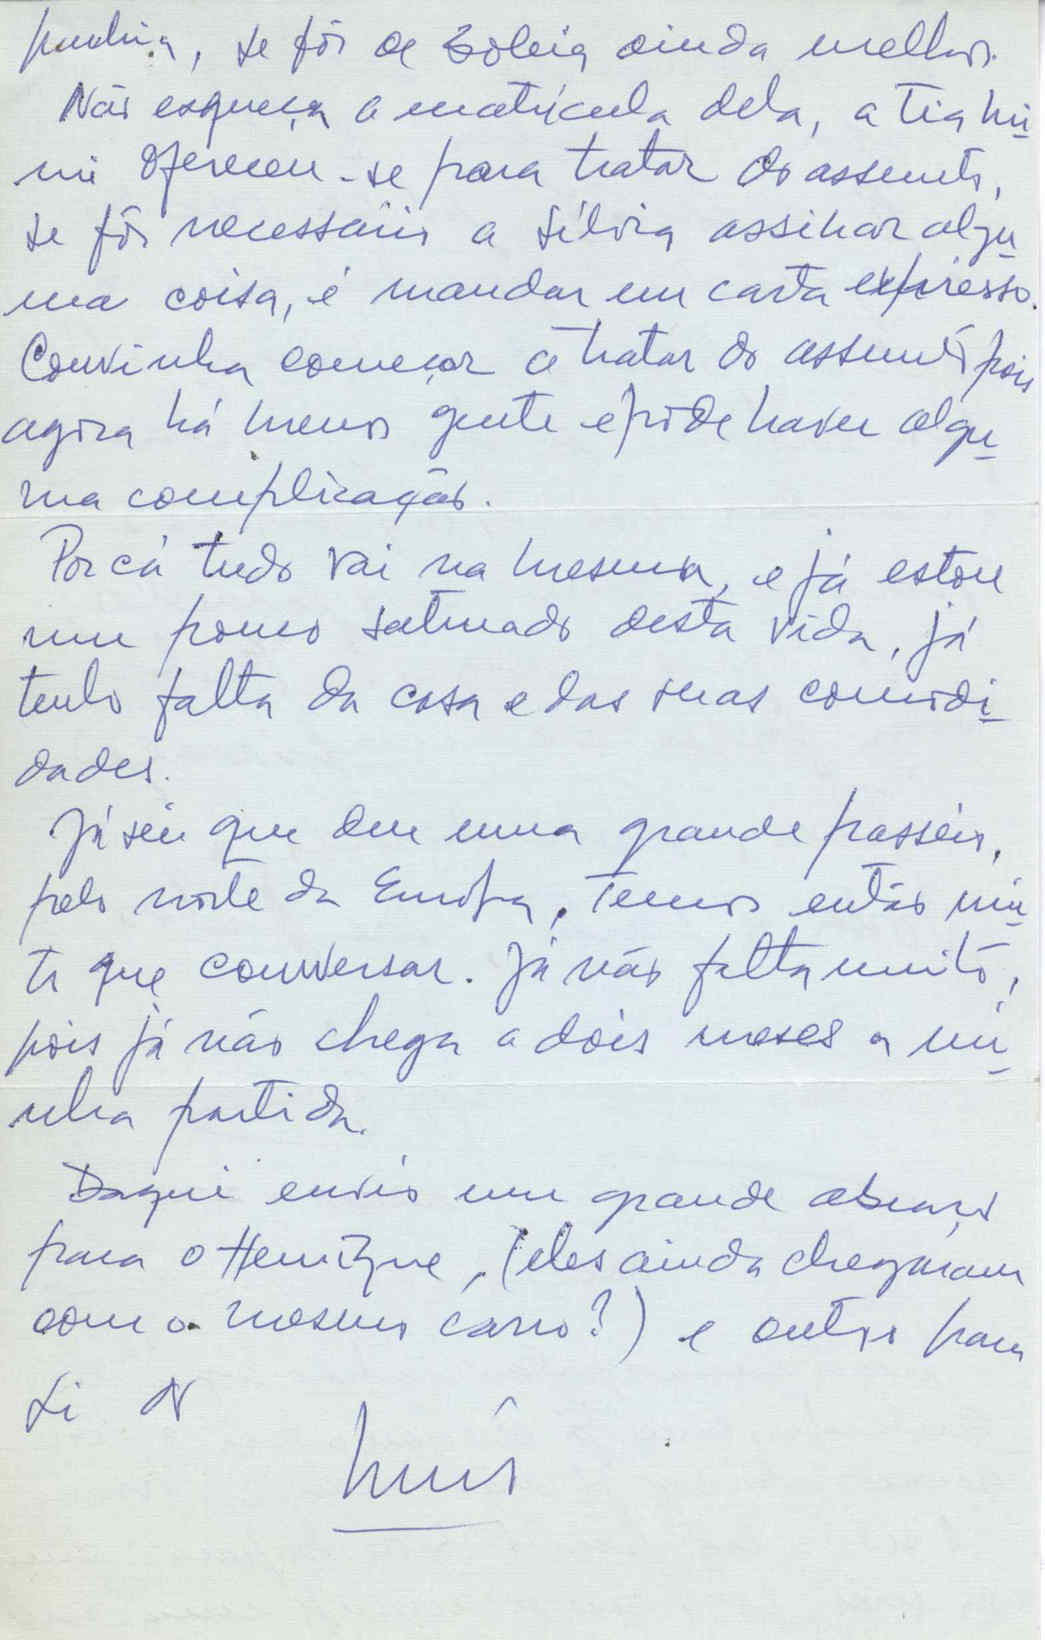 se fôr de boleia ainda melhor.
Não esqueça a matrícula dela, a tia Mi-
mi ofereceu-se para tratar do assunto,
se fôr necessário a Sílvia assinar algu-
ma coisa, é mandar em carta expresso.
Convinha começar a tratar do assunto pois
agora há menos gente e pode haver algu-
ma complicação.
Por cá tudo vai na mesma, e já estou
um pouco saturado desta vida, já
tenho falta da casa e das suas comodi-
dades.
Já sei que deu uma grande passeio,
pelo norte da Europa, temos então mui-
to que conversar. Já não falta muito,
pois já não chega a dois meses a mi-
nha partida.
Daqui envio um grande abraço
para o Henrique, (eles ainda chegaram
com o mesmo carro?) e outro para
si